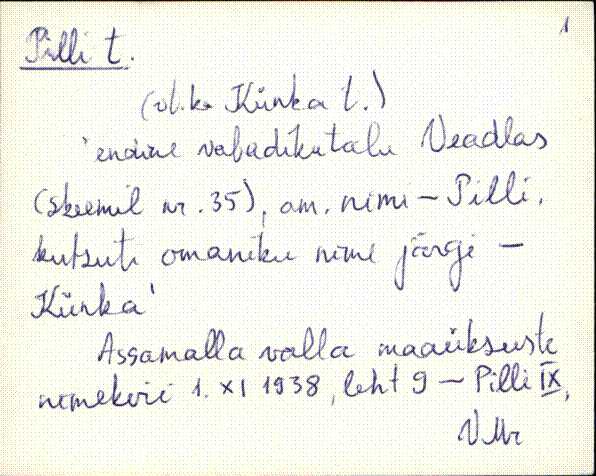 1
Pilli t.
(vt. ka Künka t.)
'endine vabadikutalu Veadlas
(skeemil nr. 35), am. nimi - Pilli,
kutsuti omaniku nime järgi -
Künka'
Assamalla valla maaüksuste
nimekiri 1. XI 1938, leht 9 - Pilli IX,
VMr